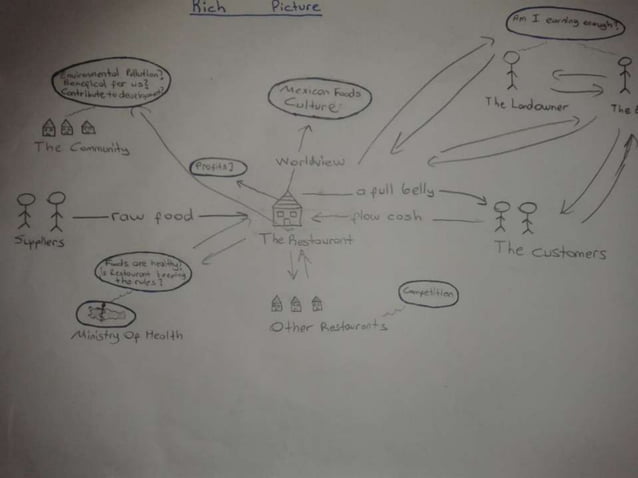 Rich Picture
Am I earning enough?
Environmental Pollution?
Benefical for us?
Contribute to development?
Mexican Foods
Culture
The Landowner
The
The Community
Profits?
Worldview
a full belly
Suppliers
raw food
flow cash
The Restaurant
The Customers
Foods are healthy?
is Restaurant keeping
the rules?
Competition
Other Restaurants
Ministry Of Health